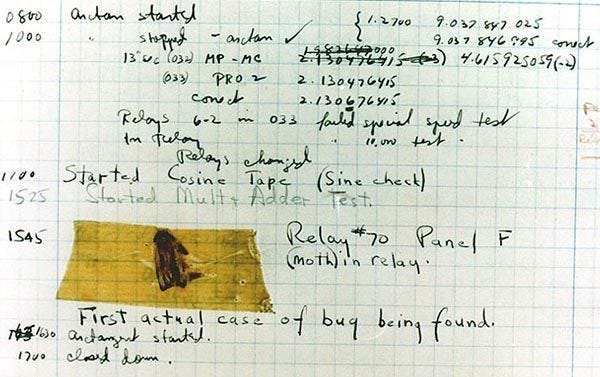 0800 arctan started { 1.2700 9.037 847 025
1000 " stopped - arctan ✓ 9.037 846 995 conect
13"uc (032) MP - MC 2.130476415 (-3) 4.615925059 (-2)
(033) PRO 2 2.130476415
conect 2.130676415
Relays 6-2 in 033 failed special speed test
In Relay " 10.000 test .
Relays changed
1100 Started Cosine Tape (Sine check)
1525 Started Mult + Adder Test.
1545 Relay #70 Panel F
(moth) in relay.
First actual case of bug being found.
1630 arctangent started.
1700 closed down.